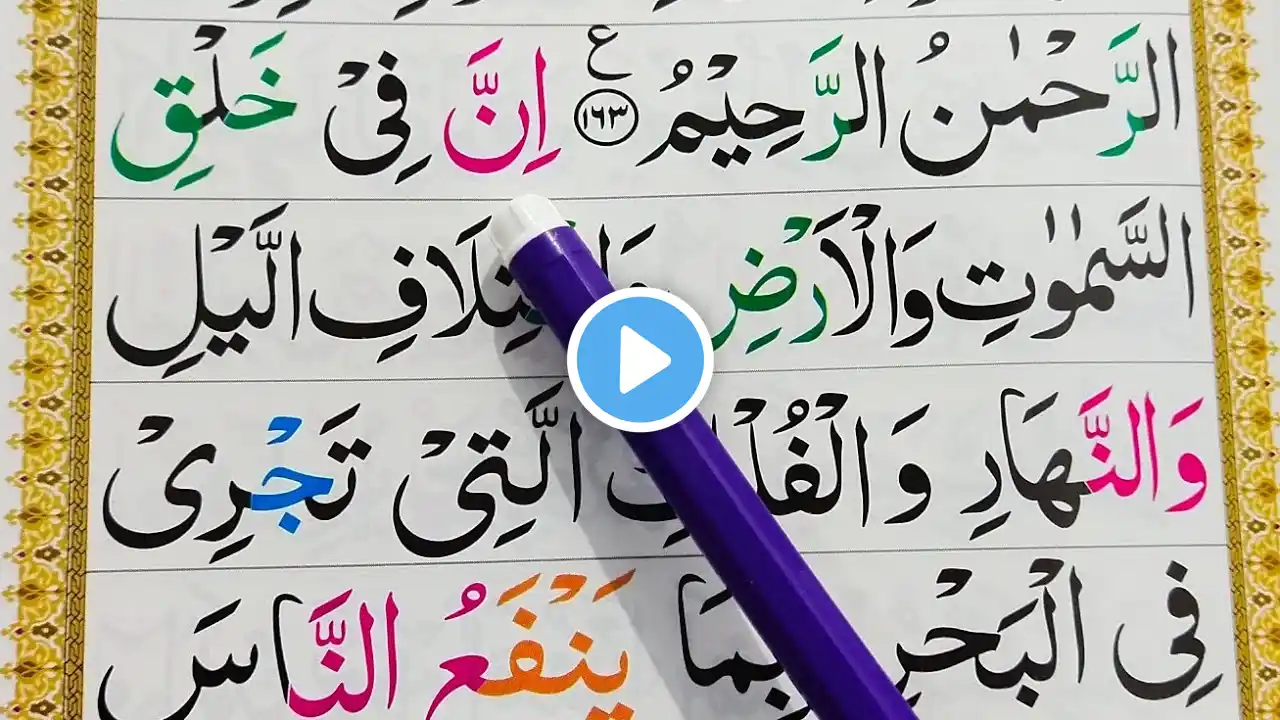 الرَّحْمٰنُ الرَّحِيْمُ ع ١٦٣ اِنَّ فِىْ خَلْقِ
السَّمٰوٰتِ وَالْاَرْضِ الَّيْلِ
وَالنَّهَارِ وَالْفُلْكِ الَّتِىْ تَجْرِىْ
فِى الْبَحْرِ بِمَا يَنْفَعُ النَّاسَ